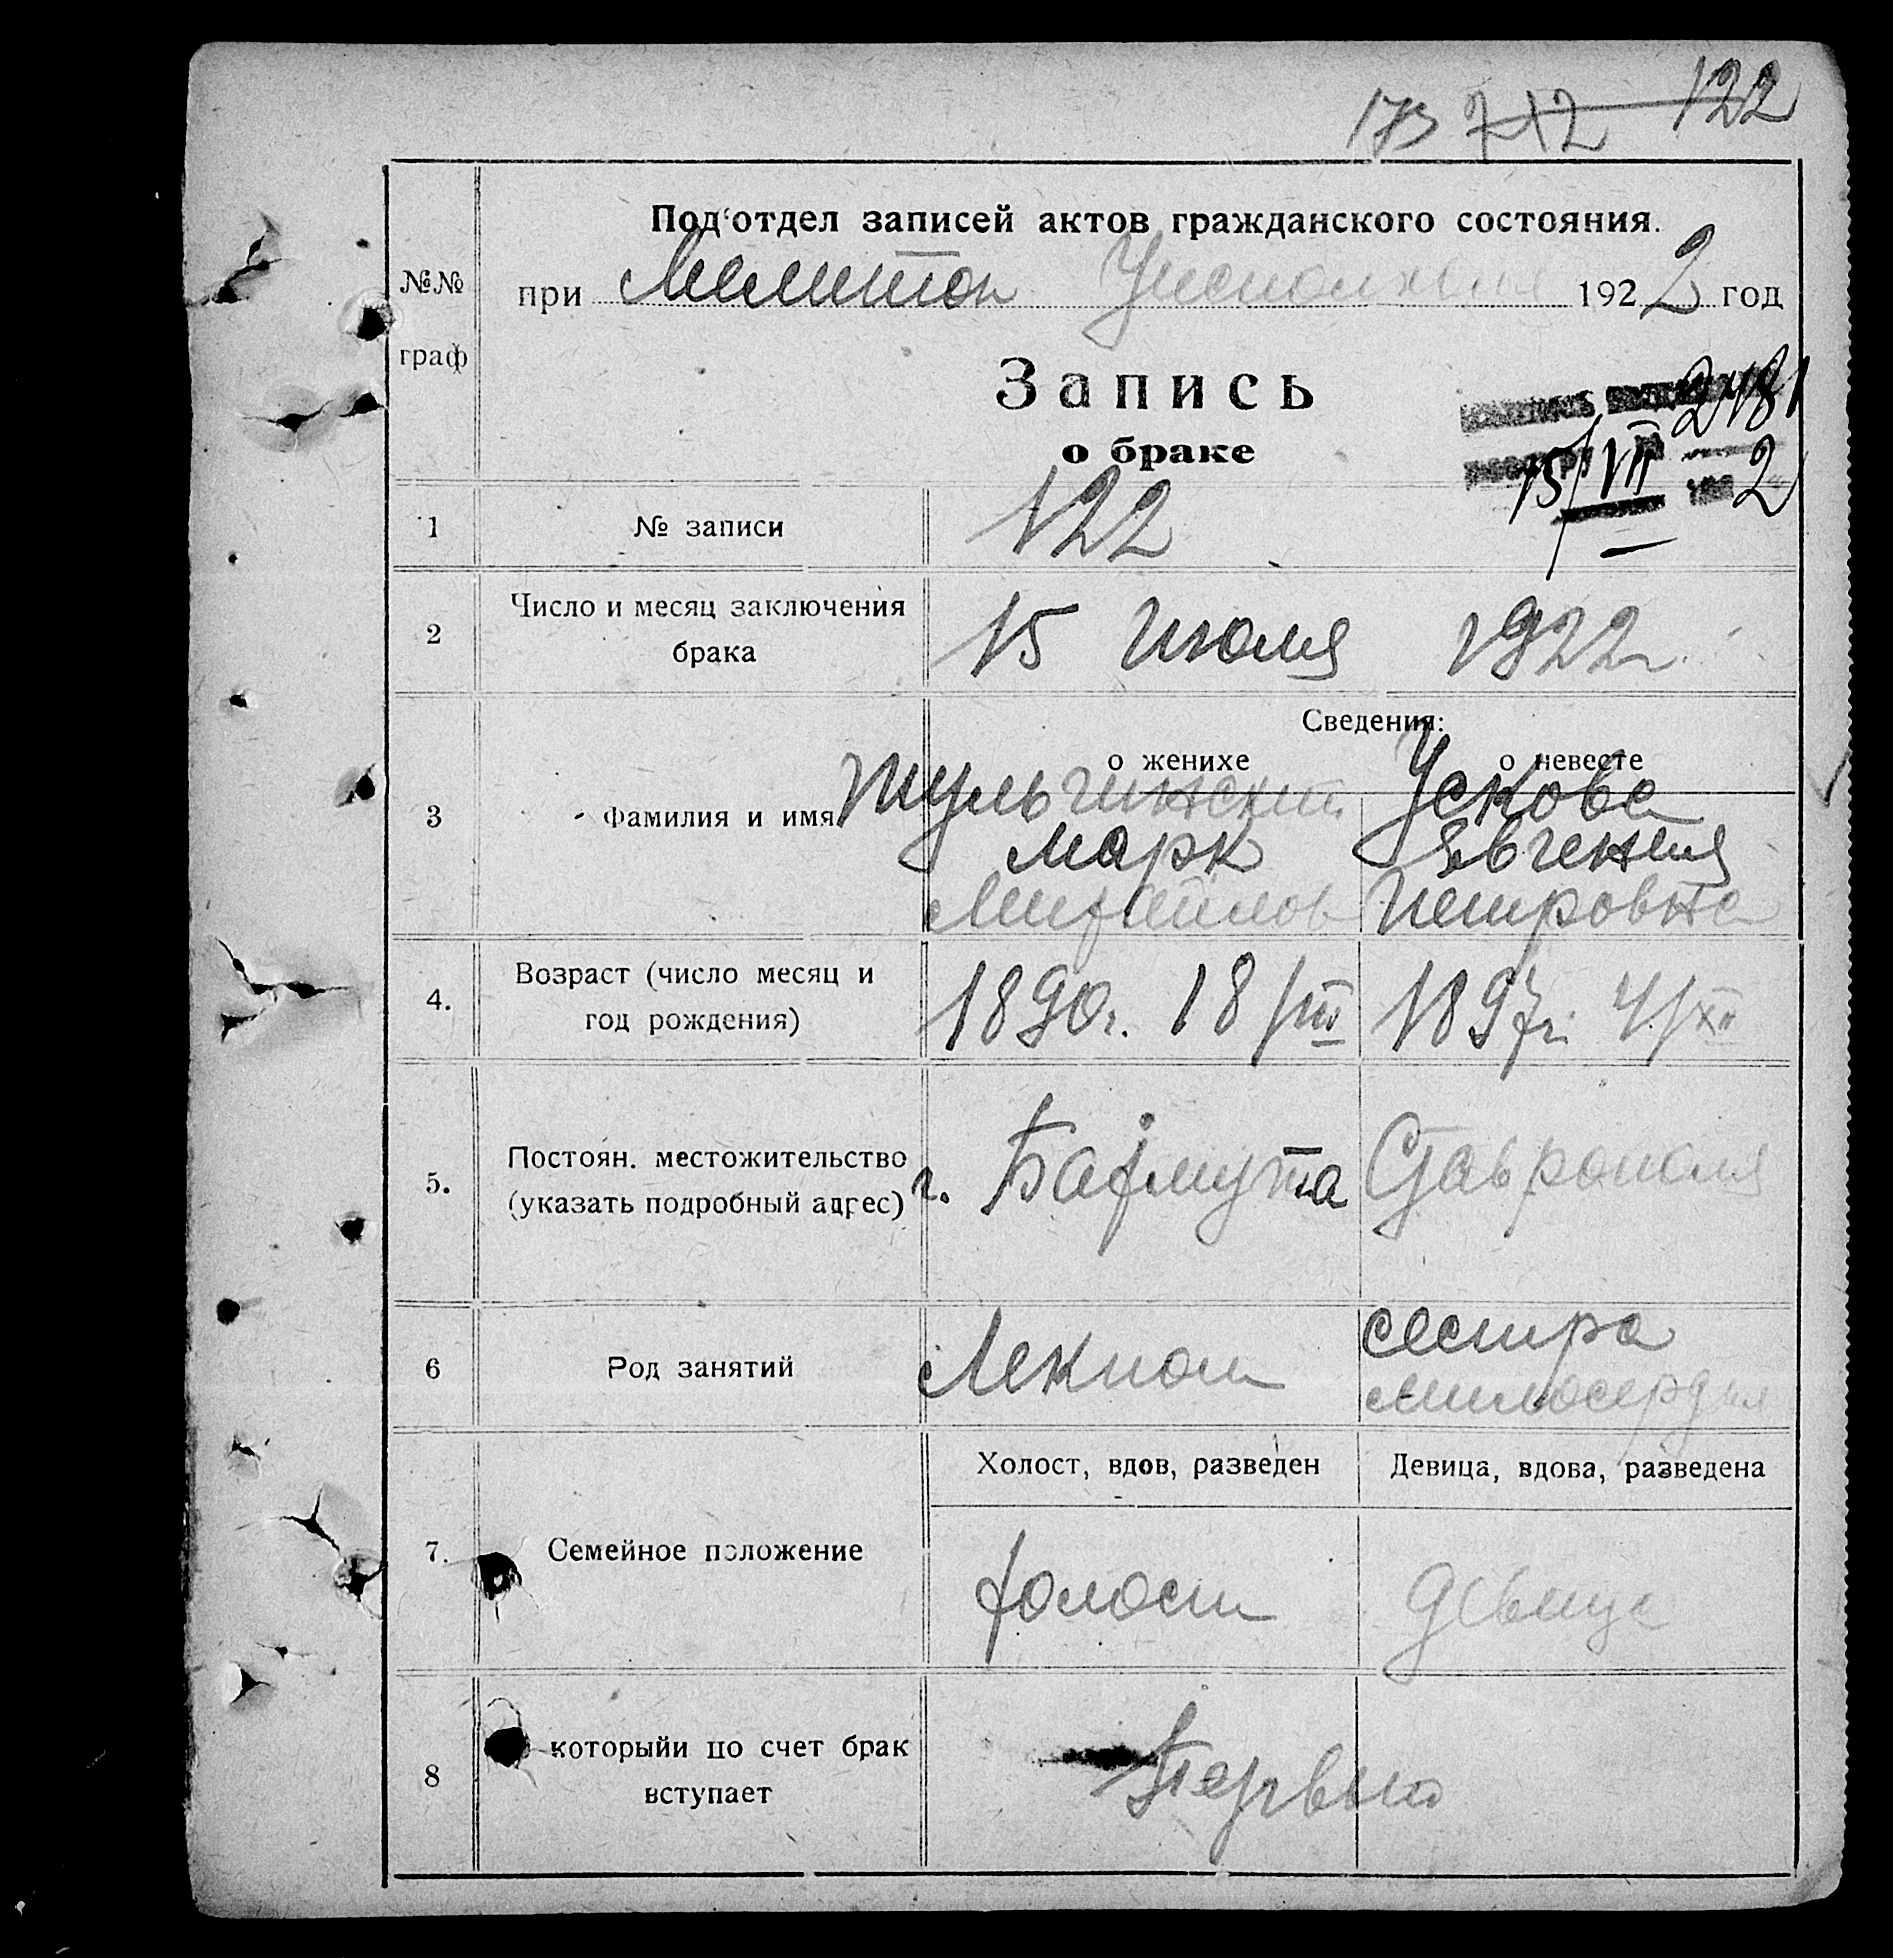 173 7-12 122
Под'отдел записей актов гражданского состояния.
№№ граф
при Мелитоп Уисполкоме 1922 год
Запись
о браке
2481
15/VII 2
1 № записи 122
2 Число и месяц заключения брака 15 Июля 1922г.
Сведения:
о женихе о невесте
3 Фамилия и имя
Тульчинский Ускова
Марк Евгения
Михайлов Петровна
4. Возраст (число месяц и год рождения) 1890г. 18/VII 1897г. 4/XII
5. Постоян. местожительство (указать подробный адрес) г. Бахмута Ставрополя
6 Род занятий Лекпом сестра милосердия
Холост, вдов, разведен Девица, вдова, разведена
7. Семейное положение холост девица
8 которыйи по счет брак вступает Первый